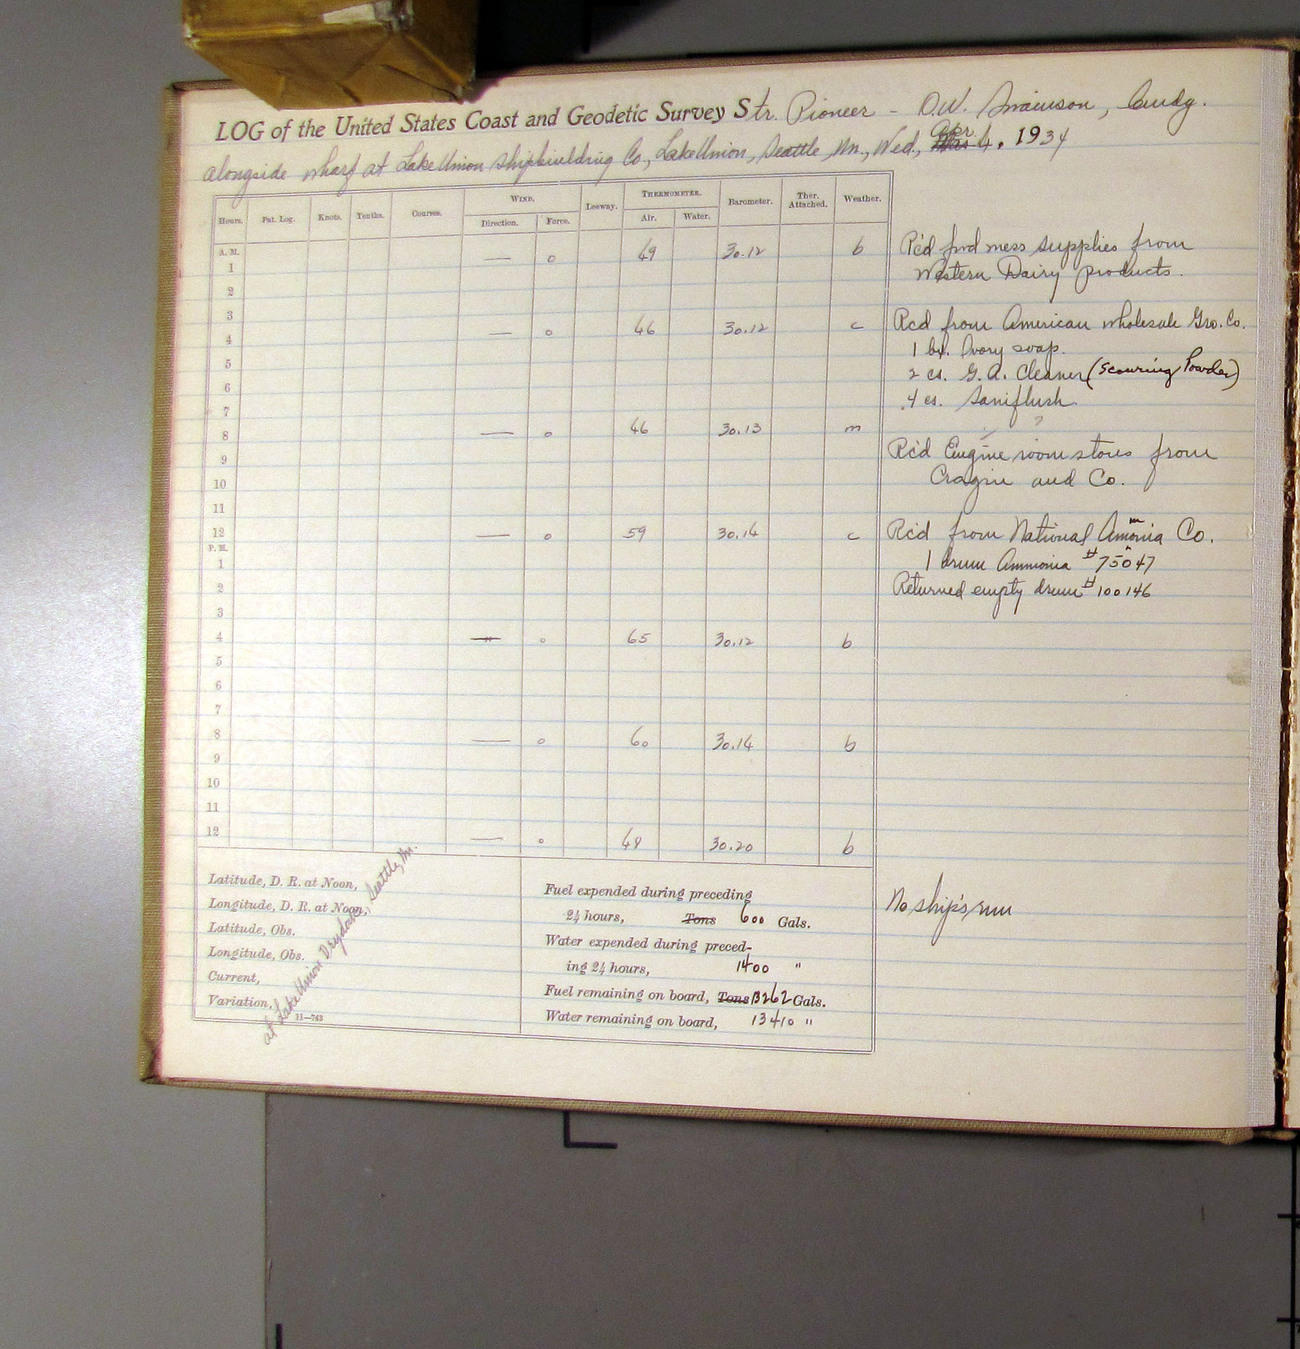 LOG of the United States Coast and Geodetic Survey Str. Pioneer - O.W. Swainson, Comdg.
alongside wharf at Lake Union Shipbuilding Co, Lake Union, Seattle, Wn., Wed., Apr. 4, 1934
Hours. Pat. Log. Knots. Tenths. Courses. WIND. Leeway. THERMOMETER. Barometer. Ther. Attached. Weather.
Direction. Force. Air. Water.
A. M. — 0 49 30.12 b
1
2
3
4 — 0 46 30.12 c
5
6
7
8 — 0 46 30.13 m
9
10
11
12 — 0 59 30.14 c
P. M.
1
2
3
4 — 0 65 30.12 b
5
6
7
8 — 0 60 30.14 b
9
10
11
12 — 0 48 30.20 b
Rc'd fwd mess supplies from
Western Dairy products.
Rcd from American wholesale Gro. Co.
1 bx. Ivory soap.
2 cs. G.A. Cleaner (Scouring Powder)
4 cs. Saniflush
Rc'd Engine room stores from
Cragin and Co.
Rc'd from National Ammonia Co.
1 drum Ammonia #75047
Returned empty drum #100146
No ship's run
Latitude, D. R. at Noon,
Longitude, D. R. at Noon,
Latitude, Obs.
Longitude, Obs.
Current,
Variation,
11—763
at Lake Union Drydock, Seattle, Wn.
Fuel expended during preceding
24 hours, Tons 600 Gals.
Water expended during preced-
ing 24 hours, 1400 "
Fuel remaining on board, Tons 13262 Gals.
Water remaining on board, 13410 "